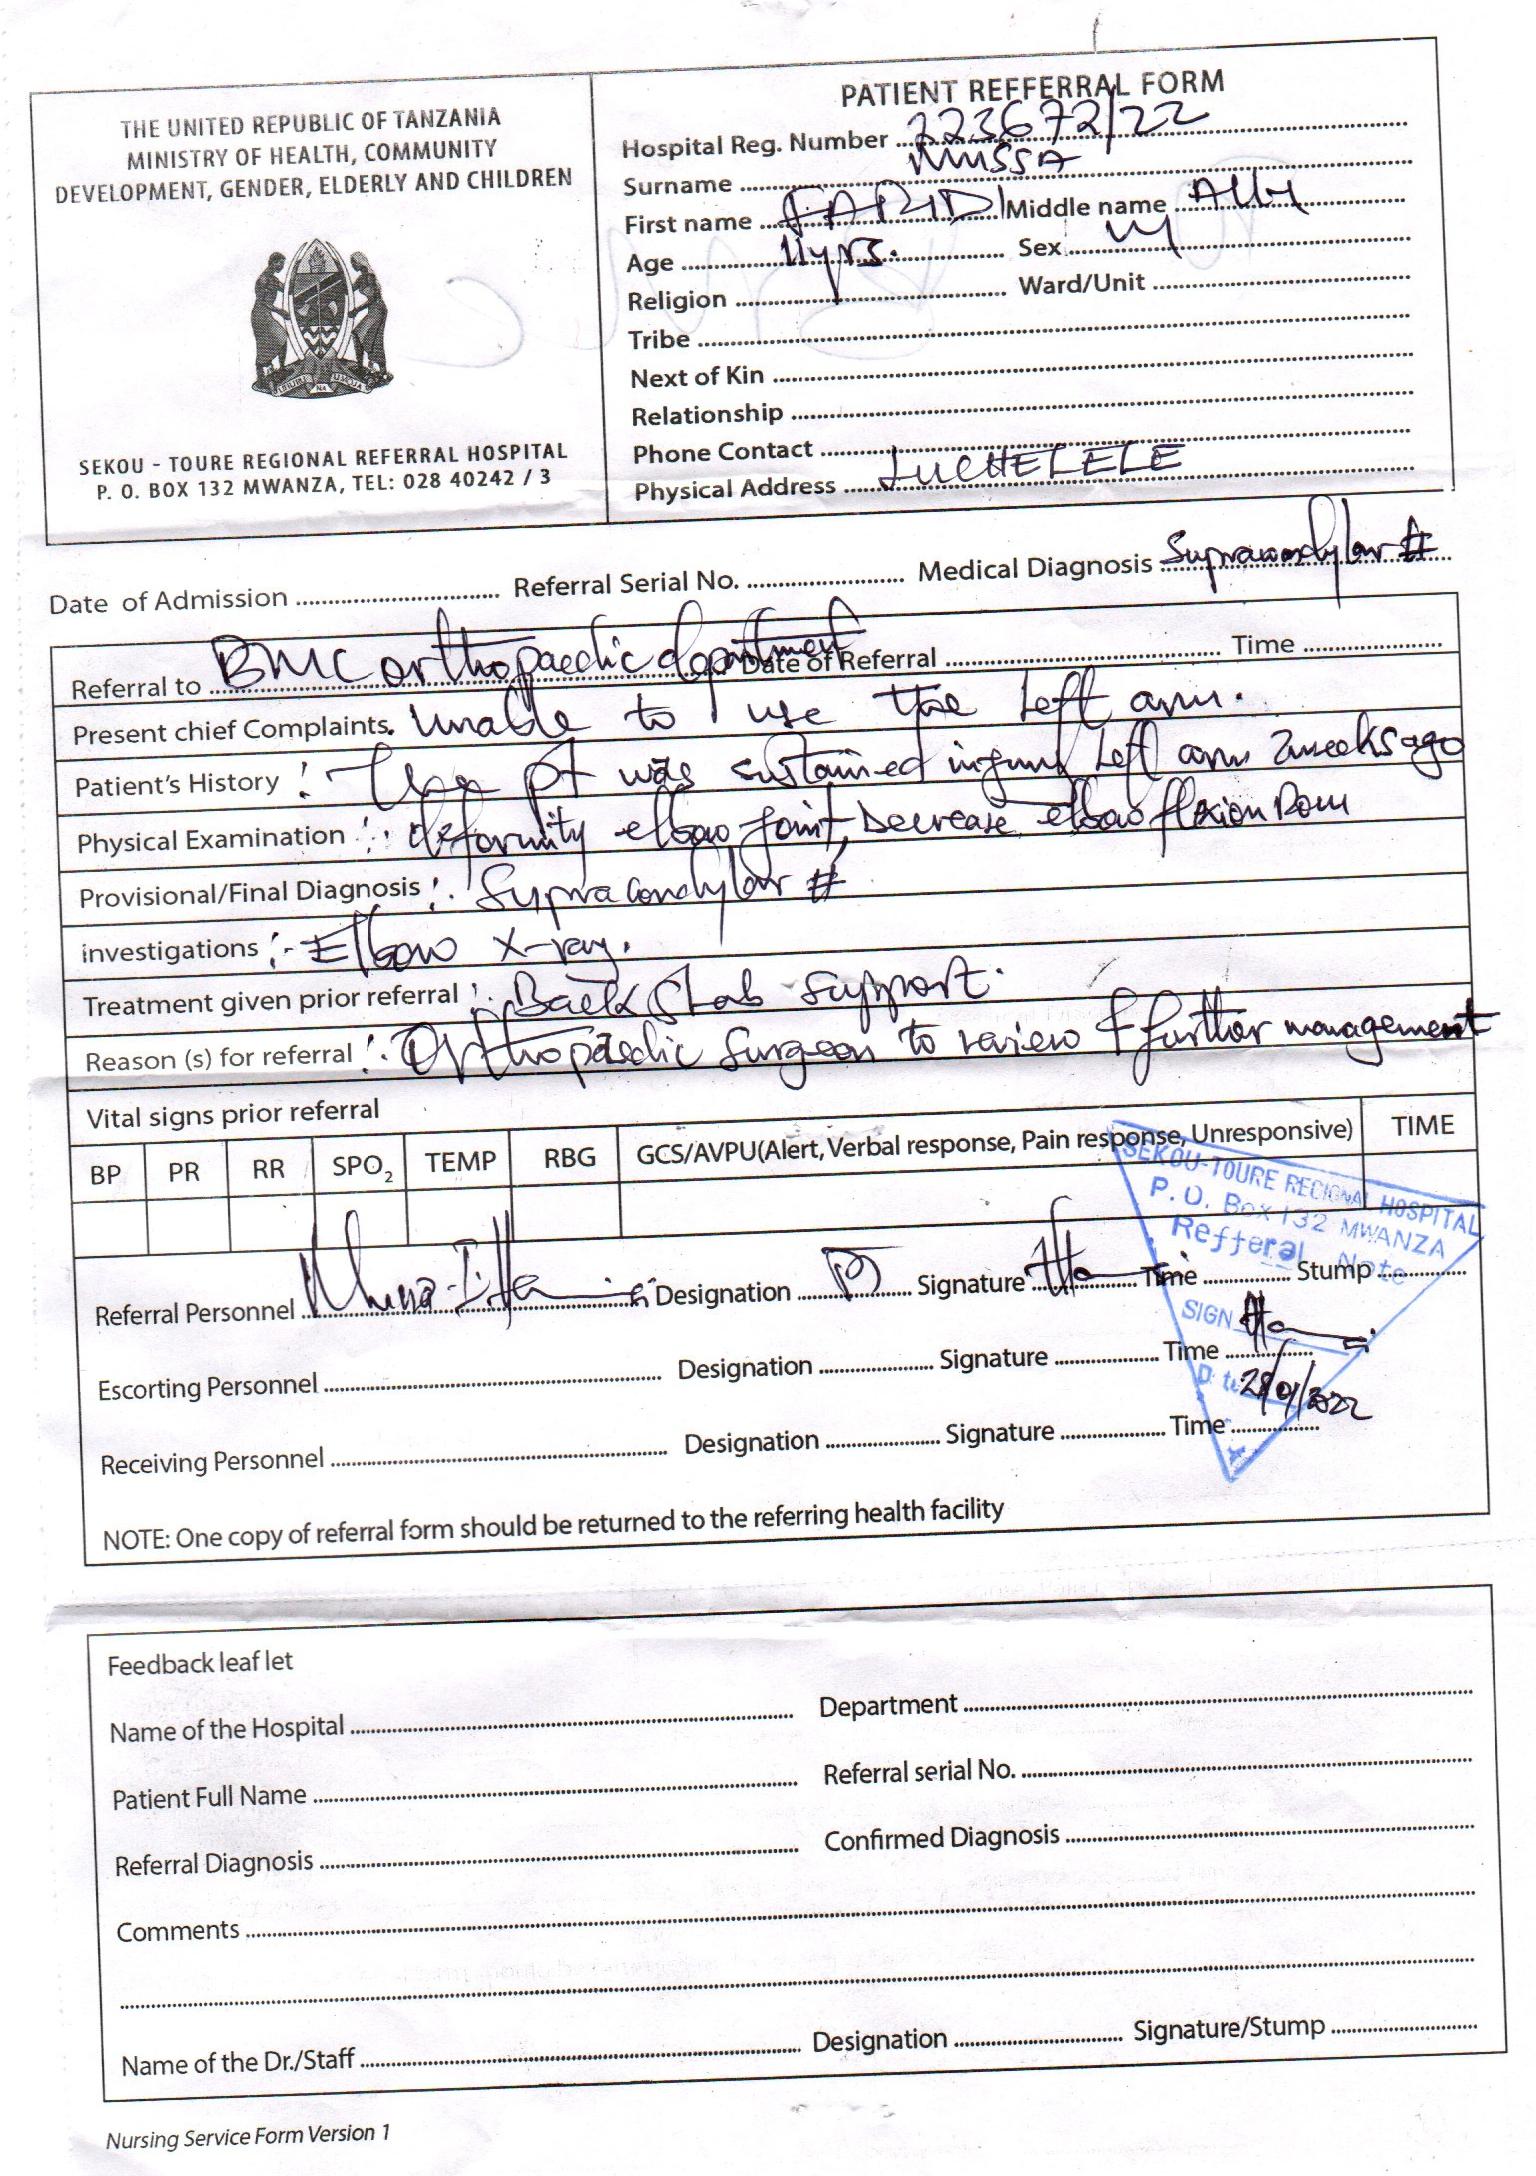 PATIENT REFFERRAL FORM
THE UNITED REPUBLIC OF TANZANIA
MINISTRY OF HEALTH, COMMUNITY
DEVELOPMENT, GENDER, ELDERLY AND CHILDREN
UHURU NA UMOJA
SEKOU - TOURE REGIONAL REFERRAL HOSPITAL
P. O. BOX 132 MWANZA, TEL: 028 40242 / 3
Hospital Reg. Number 223672/22
Surname MUSSA
First name FARIDI Middle name Ally
Age 11yrs. Sex M
Religion Ward/Unit
Tribe
Next of Kin
Relationship
Phone Contact
Physical Address LUCHELELE
Date of Admission Referral Serial No. Medical Diagnosis Supracondylar #
Referral to BMC orthopaedic department Date of Referral Time
Present chief Complaints. Unable to use the Left arm.
Patient's History :- The Pt was sustained injury Left arm 2weeks ago
Physical Examination :. deformity elbow joint, Decrease elbow flexion Rom
Provisional/Final Diagnosis :. Supracondylar #
investigations :- Elbow X-ray.
Treatment given prior referral :. Back Slab support.
Reason (s) for referral :. Orthopaedic Surgeon to review & further management
Vital signs prior referral
BP PR RR SPO2 TEMP RBG GCS/AVPU(Alert, Verbal response, Pain response, Unresponsive) TIME
SEKOU-TOURE REGIONAL HOSPITAL
P. O. Box 132 MWANZA
Refferal Note
Referral Personnel Designation Signature Time Stump
SIGN
Escorting Personnel Designation Signature Time
Date 28/01/2022
Receiving Personnel Designation Signature Time
NOTE: One copy of referral form should be returned to the referring health facility
Feedback leaf let
Name of the Hospital Department
Patient Full Name Referral serial No.
Referral Diagnosis Confirmed Diagnosis
Comments
Name of the Dr./Staff Designation Signature/Stump
Nursing Service Form Version 1